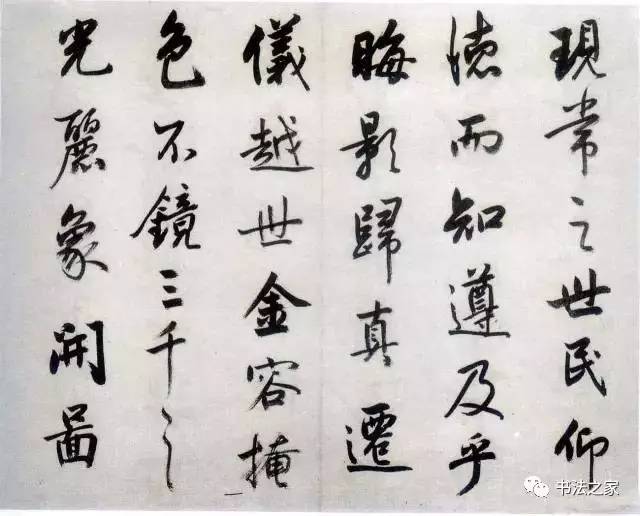 現常之世民仰
德而知遵及乎
晦影歸真遷
儀越世金容掩
色不鏡三千之
光麗象開圖
书法之家